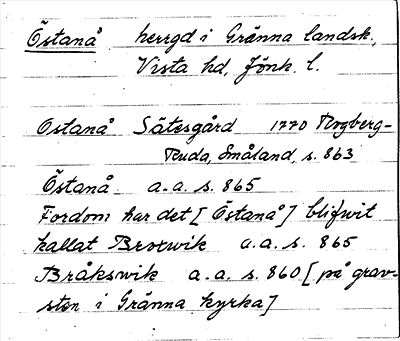 Östanå herrgd i Gränna landsk.,
Vista hd, Jönk. l.
Ostanå Sätesgård 1770 Rogberg-
Ruda, Småland, s. 863
Östanå a.a. s. 865
Fordom har det [Östanå] blifwit
kallat Brotwik a.a. s. 865
Bråkswik a.a. s. 860 [på grav-
sten i Gränna kyrka]